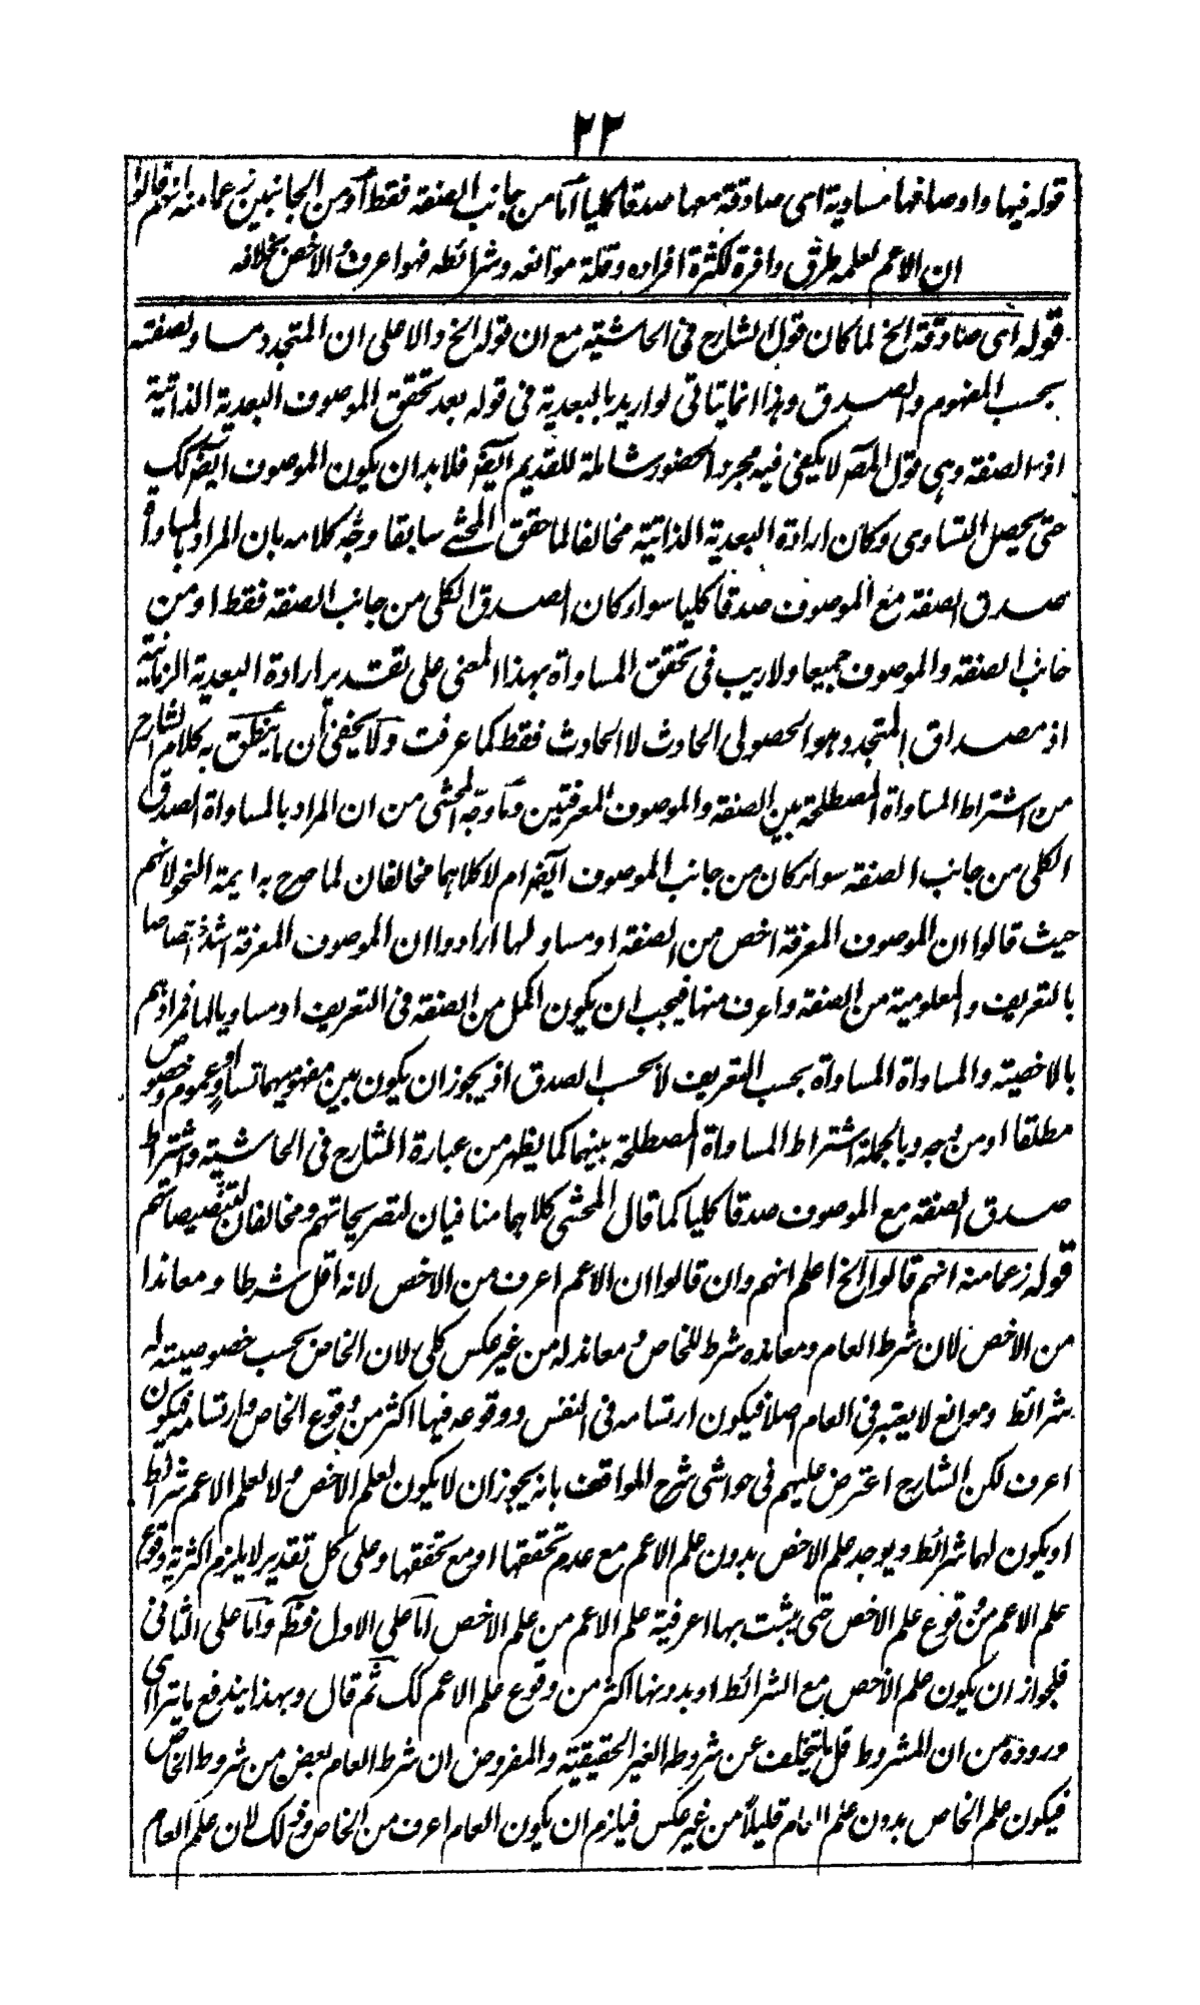 ٢٢
قوله فيها واوصافها مساوية اى صادقة معها صدقا كليا اما من جانب الصفة فقط او من الجانبين زعما منه انهم قالوا
ان الاعم لعلمه طرق وافرة لكثرة افراده وقلة موانعه وشرائطه فهو اعرف والاخص بخلافه
قوله اى صادقة الخ لما كان قول الشارح فى الحاشية مع ان قوله الخ دالا على ان المتجدد مساو لصفته
بحسب المفهوم والصدق وهذا انما يتاتى لو اريد بالبعدية فى قوله بعد تحقق الموصوف البعدية الذاتية
اذ الصفة وهى قول المصـ لا يكفى فيه مجرد الحضور شاملة للقديم ايضـ فلابد ان يكون الموصوف ايضـ كك
حتى يحصل التساوى وكان ارادة البعدية الذاتية مخالفا لما حقق المحشى سابقا وجّه كلامه بان المراد بالمساواة
صدق الصفة مع الموصوف صدقا كليا سواء كان الصدق الكلى من جانب الصفة فقط او من
جانب الصفة والموصوف جميعا ولا ريب فى تحقق المساواة بهذا المعنى على تقدير ارادة البعدية الزمانية
اذ مصداق المتجدد هو الحصولى الحادث لا الحادث فقط كما عرفت ولا يخفى ان ما ينطق به كلام الشارح
من اشتراط المساواة المصطلحة بين الصفة والموصوف المعرفتين وما وجّه المحشى من ان المراد بالمساواة الصدق
الكلى من جانب الصفة سواء كان من جانب الموصوف ايضـ ام لا كلاهما مخالفان لما صرح به ايمة النحو لانهم
حيث قالوا ان الموصوف المعرفة اخص من الصفة او مساو لها ارادوا ان الموصوف المعرفة اشد اختصاصا
بالتعريف والمعلومية من الصفة واعرف منها فيجب ان يكون اكمل من الصفة فى التعريف او مساويا لها فمرادهم
بالاخصية والمساواة المساواة بحسب التعريف لا بحسب الصدق اذ يجوز ان يكون بين مفهوميهما تساو او عموم وخصوص
مطلقا او من وجه وبالجملة اشتراط المساواة المصطلحة بينهما كما يظهر من عبارة الشارح فى الحاشية واشتراط
صدق الصفة مع الموصوف صدقا كليا كما قال المحشى كلاهما منافيان لتصريحاتهم ومخالفان لتنصيصاتهم
قوله زعما منه انهم قالوا الخ اعلم انهم وان قالوا ان الاعم اعرف من الاخص لانه اقل شرطا ومعاندا
من الاخص لان شرط العام ومعانده شرط للخاص ومعاند له من غير عكس كلى لان الخاص بحسب خصوصيته له
شرائط وموانع لا يعتبر فى العام اصلا فيكون ارتسامه فى النفس ووقوعه فيها اكثر من وقوع الخاص وارتسامه فيكون
اعرف لكن الشارح اعترض عليهم فى حواشى شرح المواقف بانه يجوز ان لا يكون لعلم الاخص ولا لعلم الاعم شرائط
او يكون لهما شرائط ويوجد علم الاخص بدون علم الاعم مع عدم تحققها او مع تحققها وعلى كل تقدير لا يلزم اكثرية وقوع
علم الاعم من وقوع علم الاخص حتى يثبت بها اعرفية علم الاعم من علم الاخص اما على الاول فظـ واما على الثانى
فلجواز ان يكون علم الاخص مع الشرائط او بدونها اكثر من وقوع علم الاعم كك ثم قال وبهذا يندفع ما يتراى
وروده من ان المشروط قلما يتخلف عن شروطه الغير الحقيقية والمفروض ان شرط العام بعض من شروط الخاص
فيكون علم الخاص بدون علم العام قليلا من غير عكس فيلزم ان يكون العام اعرف من الخاص وذلك لان علم العام